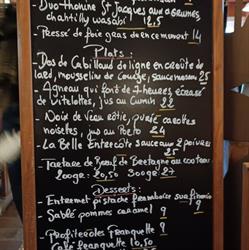 - Duo thonine St Jacques aux agrumes,
chantilly wasabi 12,5
- Pressé de foie gras donconment 14
Plats:
- Dos de Cabillaud de ligne en croûte de
lard, mousseline de courge, sauce
- Agneau qui font de 7 heures, écrasé
de vitelottes, jus au Cumin 22
- Noix de veau rôtie, purée carottes
noisettes, jus au Porto 24
- La Belle Entrecôte sauce aux 2 poivres
25
- Tartare de Boeuf de Bretagne au couteau
200gr : 20,50 300gr : 27
Desserts :
- Entremet pistache framboise sur
9
- Sablé pommes caramel 9
- Profiteroles Franquette 9
- Café Franquette 10,50